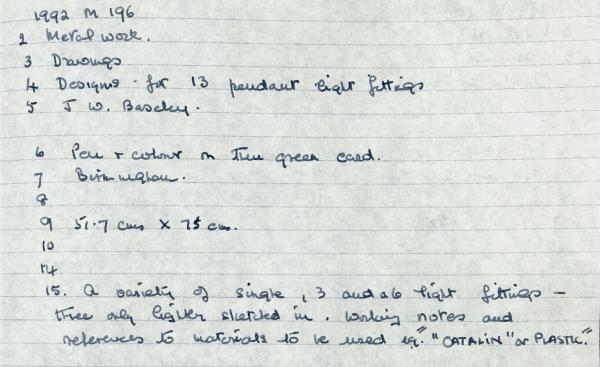 1992 M 196
2 Metal work.
3 Drawings
4 Designs for 13 pendant light fittings
5 J W. Baseley.
6 Pen + colour on thin green card.
7 Birmingham.
8
9 51.7 cms X 75 cms.
10
14
15. A variety of single, 3 and a 6 light fittings -
three only lightly sketched in. Working notes and
references to materials to be used eg. "CATALIN" or PLASTIC."